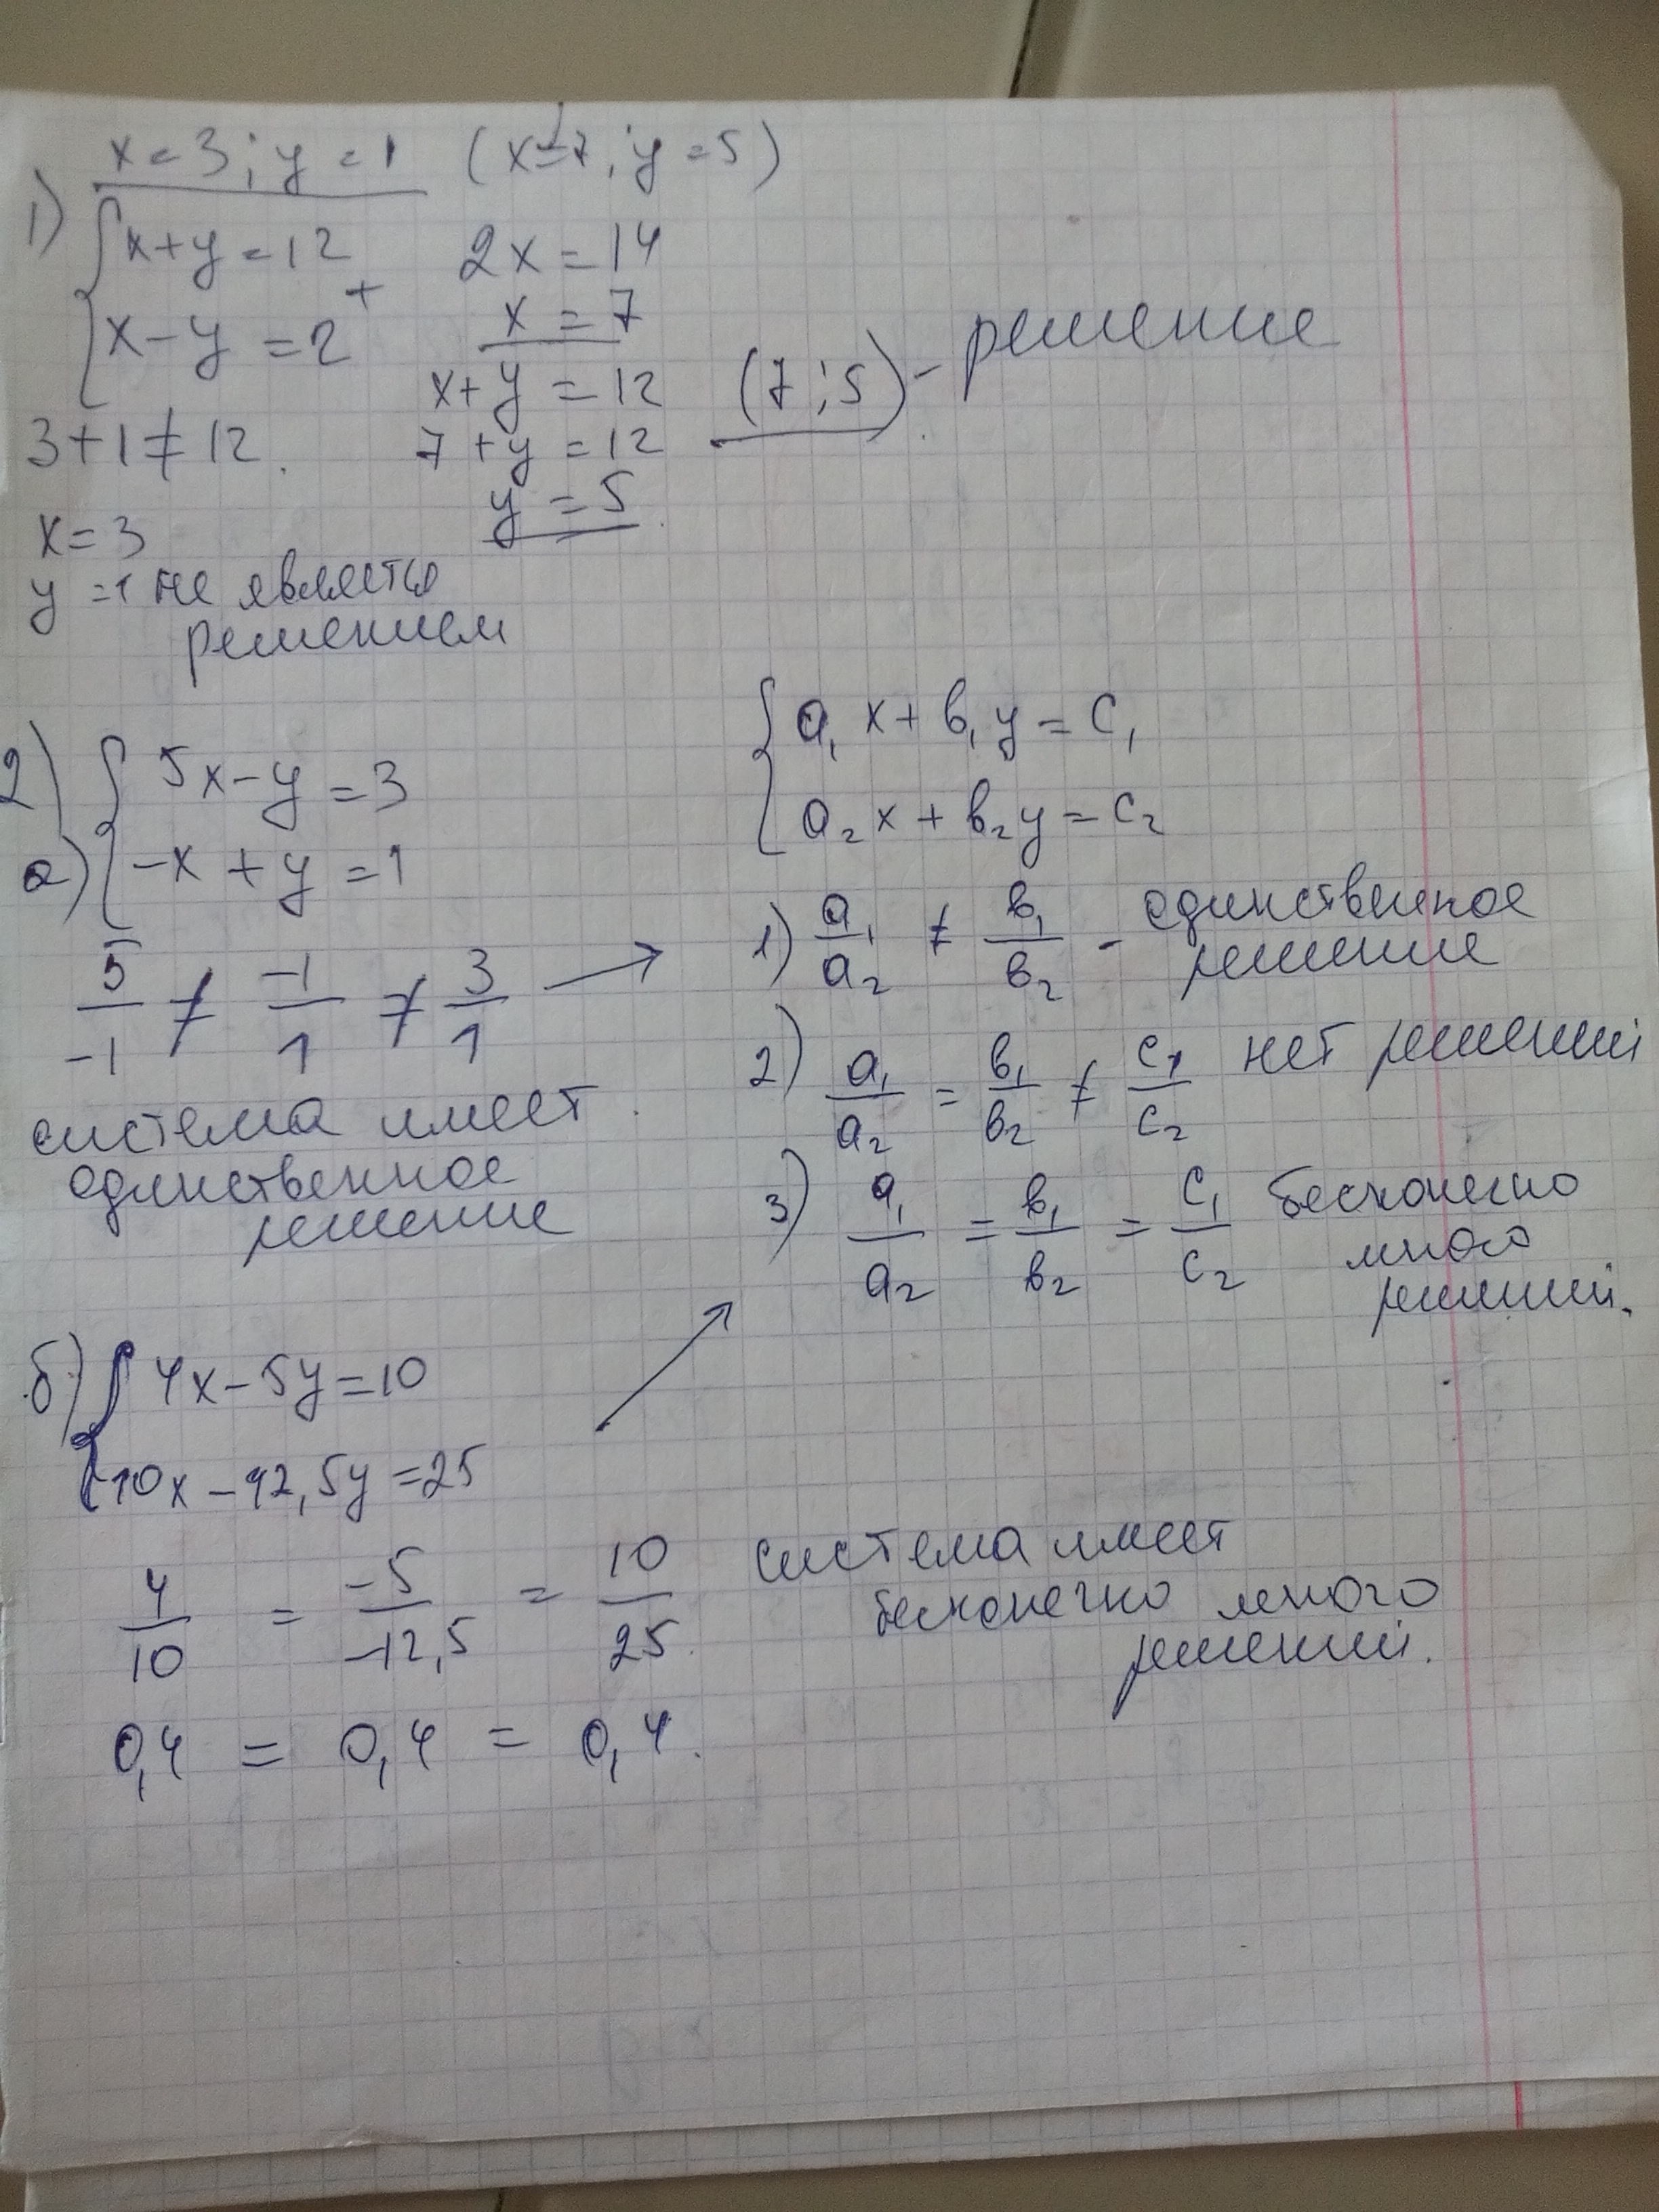 x = 3; y = 1 (x=7; y=5)
1) { x+y=12
x-y=2 +
3+1≠12.
x=3
y=1 не является
решением
2x=14
x=7
x+y=12
7+y=12
y=5.
(7;5) - решение
2)
а) { 5x-y=3
-x+y=1
5/-1 ≠ -1/1 ≠ 3/1 →
система имеет
единственное
решение
{ a₁x+в₁y=c₁
a₂x+в₂y=c₂
1) a₁/a₂ ≠ в₁/в₂ - единственное
решение
2) a₁/a₂ = в₁/в₂ ≠ c₁/c₂ нет решений
3) a₁/a₂ = в₁/в₂ = c₁/c₂ бесконечно
много
решений.
б) { 4x-5y=10
10x-12,5y=25
4/10 = -5/-12,5 = 10/25.
0,4 = 0,4 = 0,4.
система имеет
бесконечно много
решений.